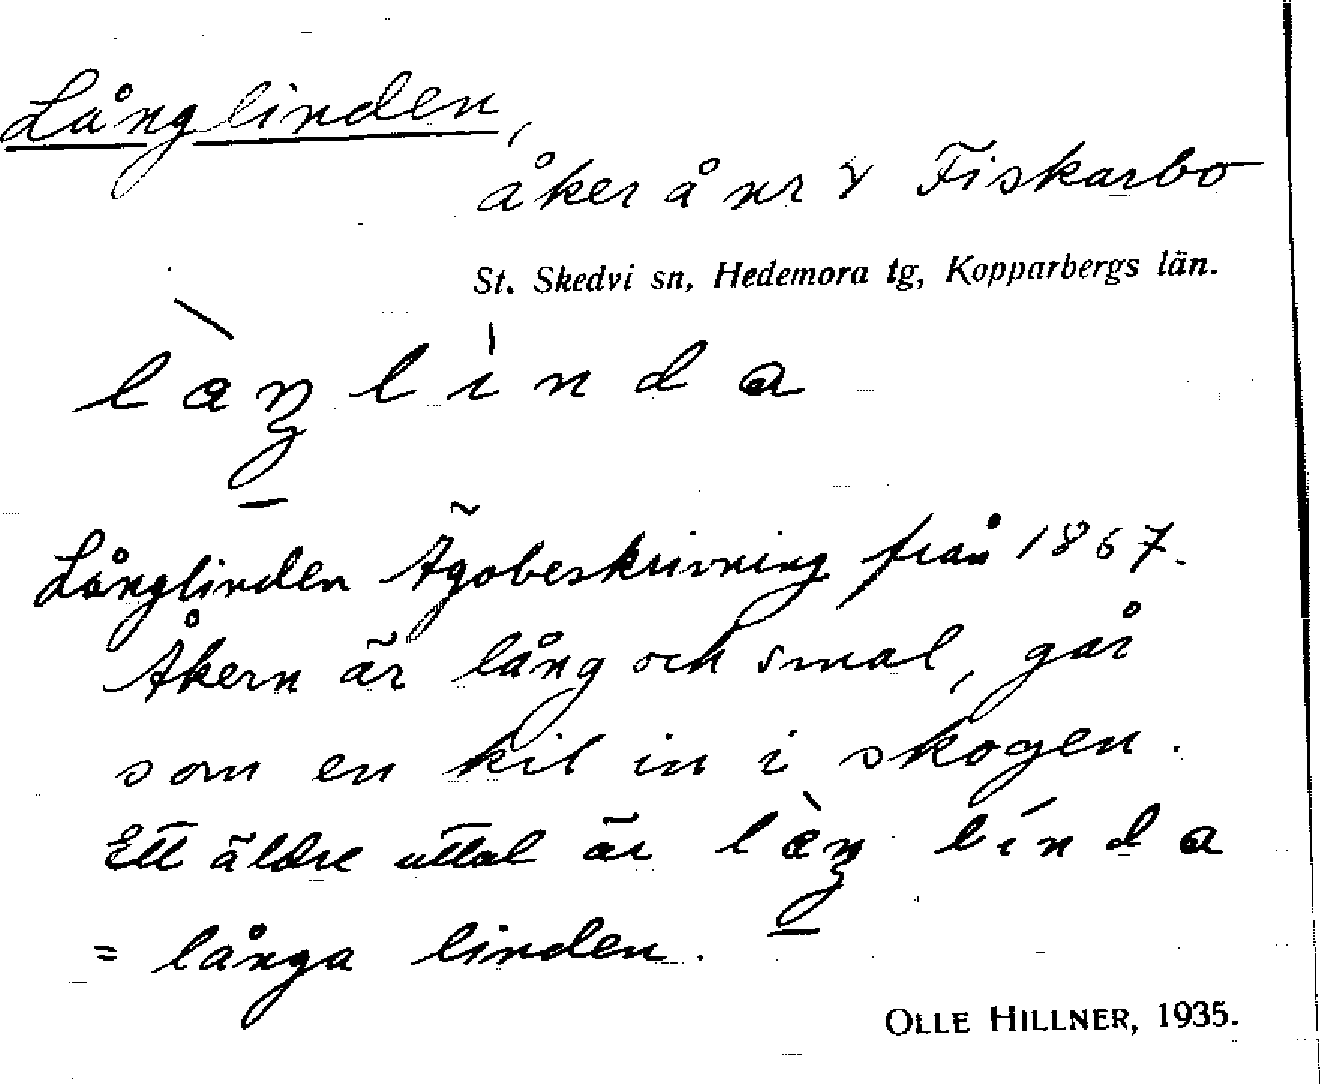 Långlinden,
åker å nr 8 Fiskarbo
St. Skedvi sn, Hedemora tg, Kopparbergs län.
làŋlinda
Långlinden Ägobeskrivning från 1867.
Åkern är lång och smal, går
som en kil in i skogen.
Ett äldre uttal är làŋ línda
= långa linden.
OLLE HILLNER, 1935.